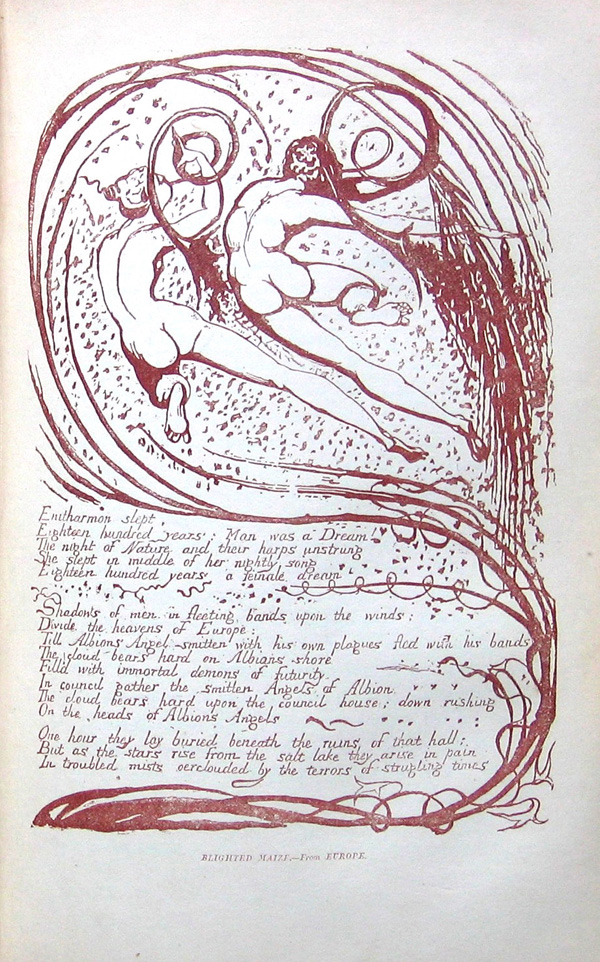 Enitharmon slept,
Eighteen hundred years: Man was a Dream
The night of Nature and their harps unstrung
She slept in middle of her nightly song
Eighteen hundred years a female dream
Shadows of men in fleeting bands upon the winds:
Divide the heavens of Europe:
Till Albions Angel smitten with his own plagues fled with his bands
The cloud bears hard on Albions shore
Filld with immortal demons of futurity.
In council gather the smitten Angels of Albion
The cloud bears hard upon the council house; down rushing
On the heads of Albions Angels
One hour they lay buried beneath the ruins of that hall;
But as the stars rise from the salt lake they arise in pain
In troubled mists oerclouded by the terrors of strugling times
BLIGHTED MAIZE.—From EUROPE.